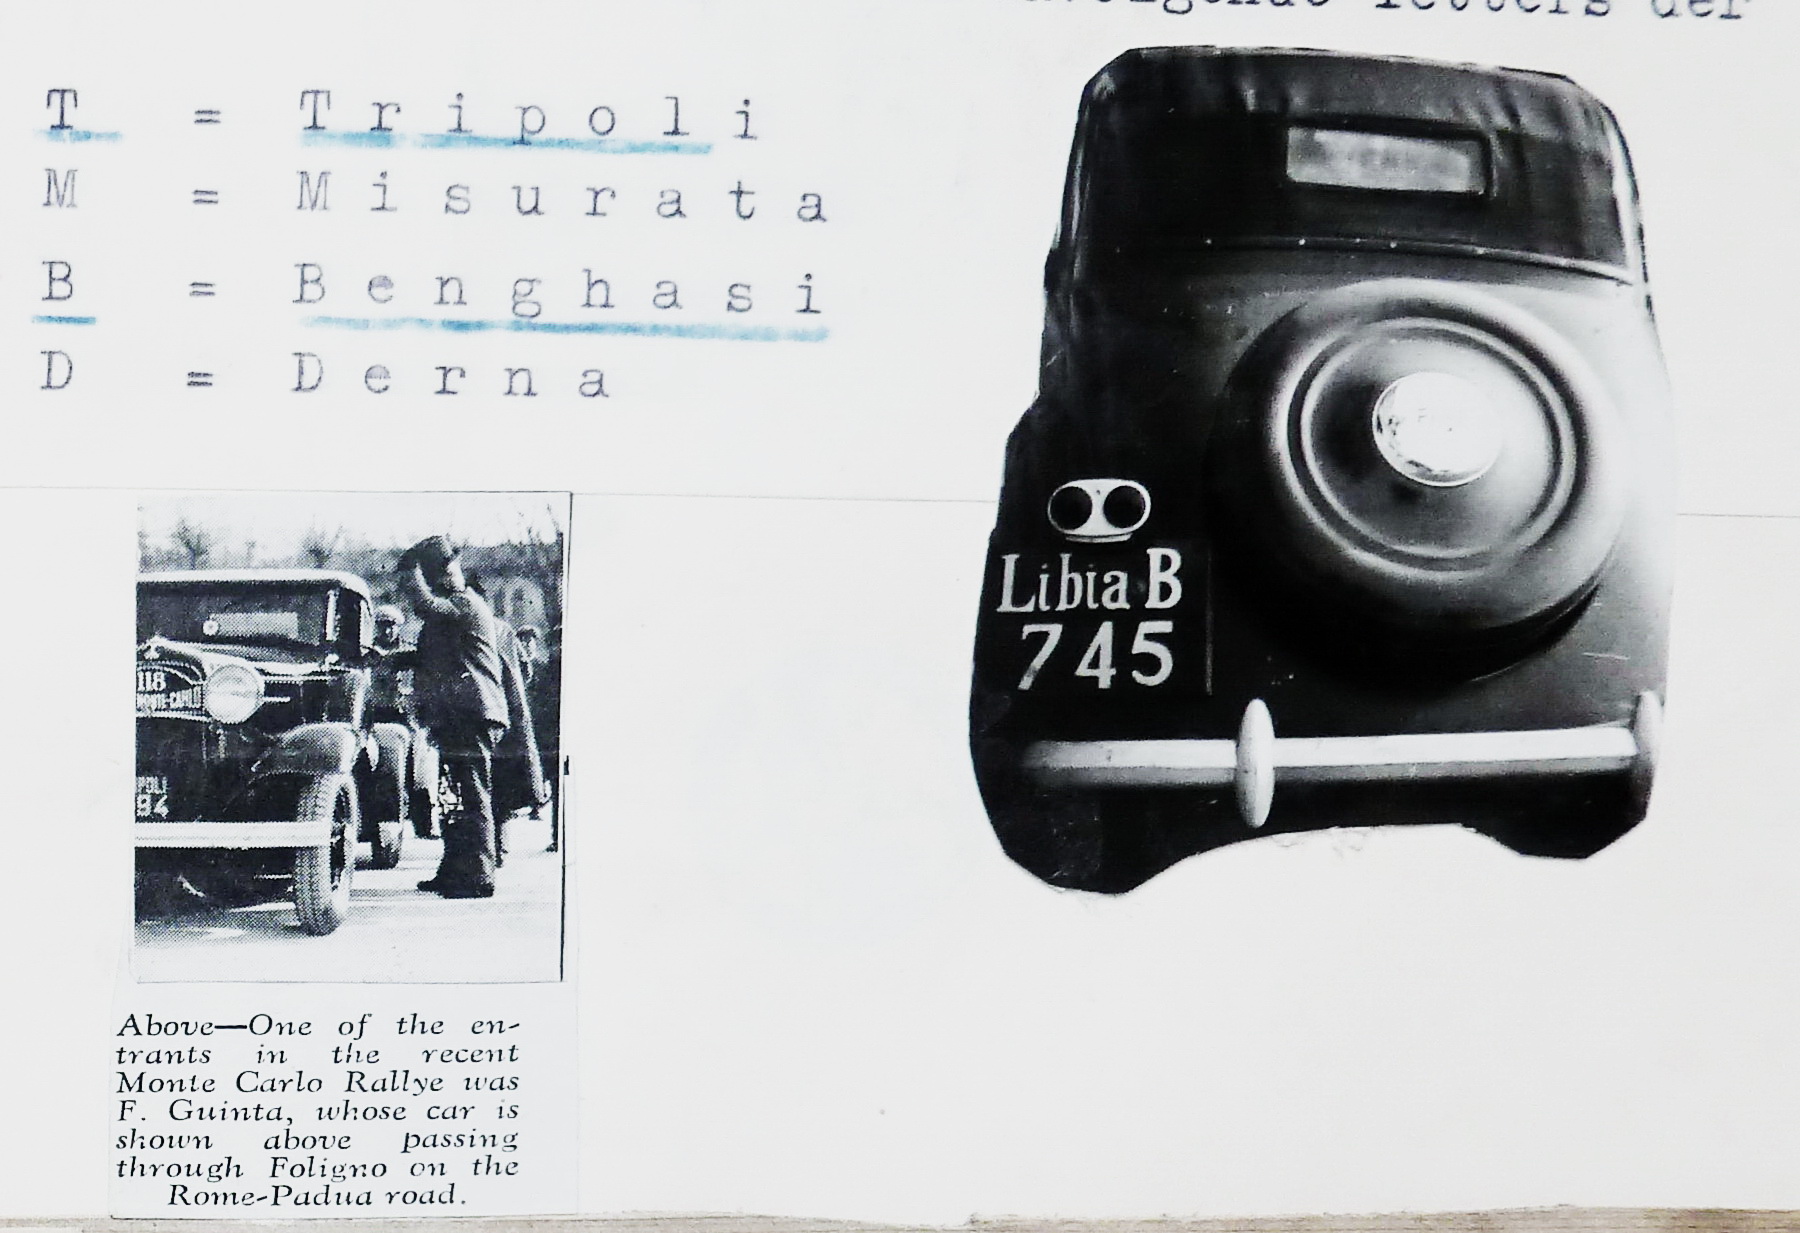 letters der
T = Tripoli
M = Misurata
B = Benghasi
D = Derna
Libia B
745
118
MONTE-CARLO
POLI
94
Above—One of the en-
trants in the recent
Monte Carlo Rallye was
F. Guinta, whose car is
shown above passing
through Foligno on the
Rome-Padua road.